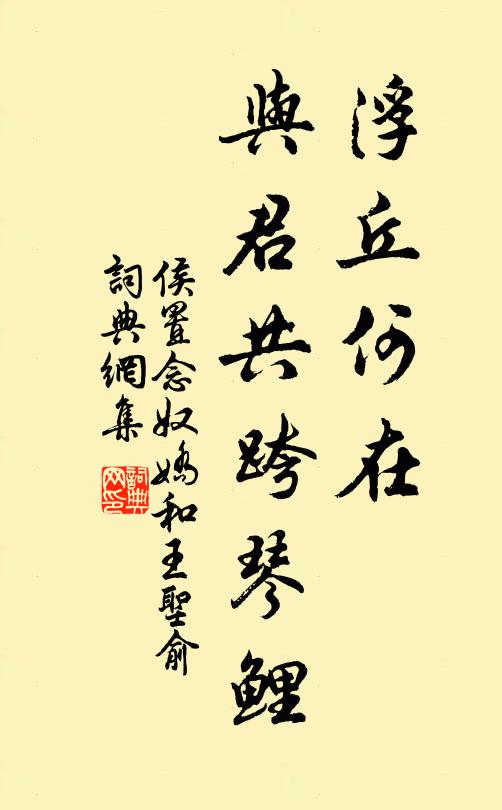 浮丘何在
與君共跨琴鯉
侯置念奴嬌和王聖俞
詞典網集
詞典網印